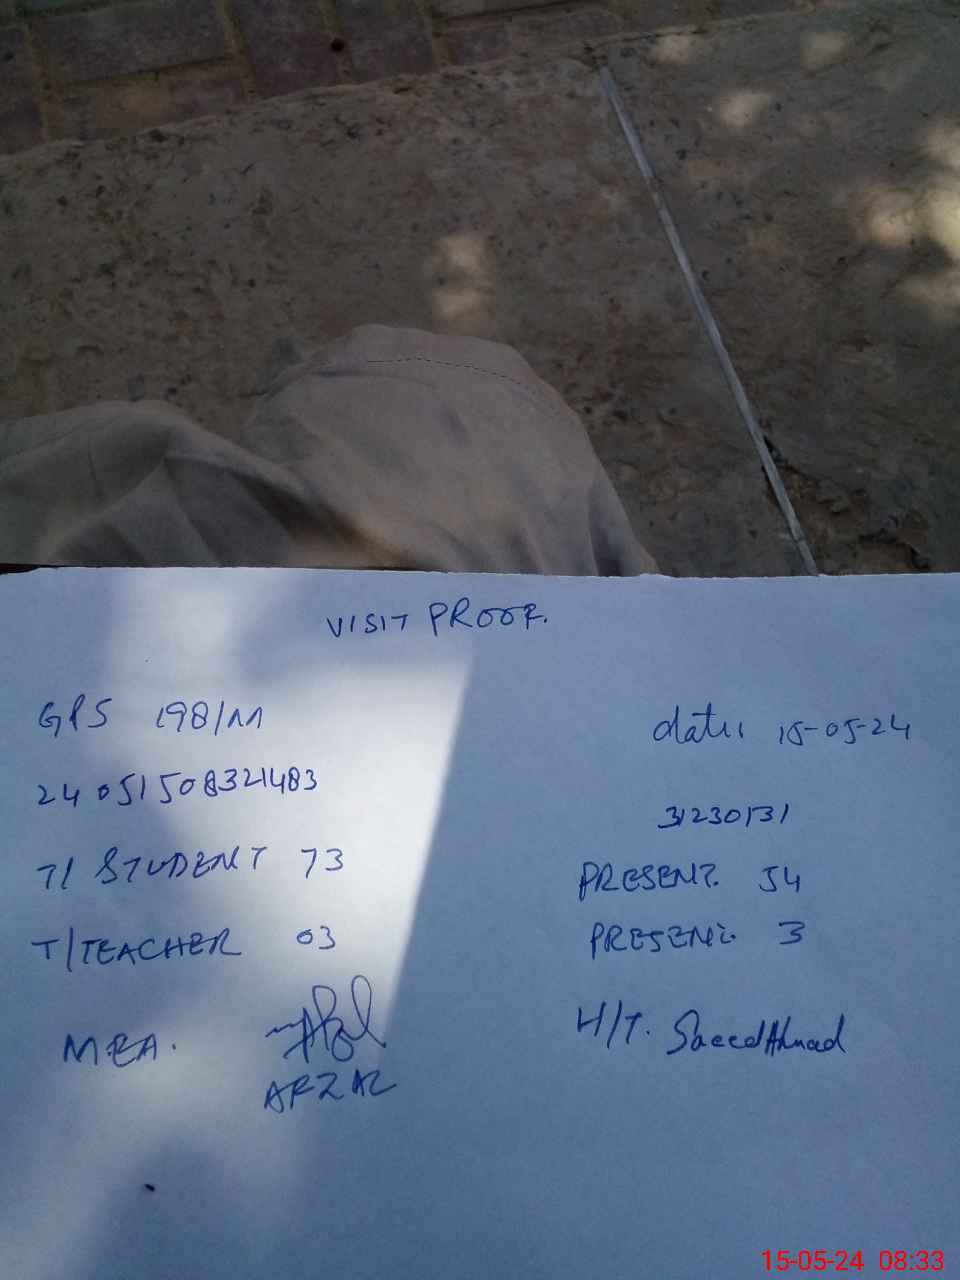 VISIT PROOF.
GPS 198/M date: 15-05-24
24051508321483
31230131
T/ STUDENT 73 PRESENT. 54
T/TEACHER 03 PRESENT. 3
MEA. Afzal H/T. Saeed Ahmad
AFZAL
15-05-24 08:33